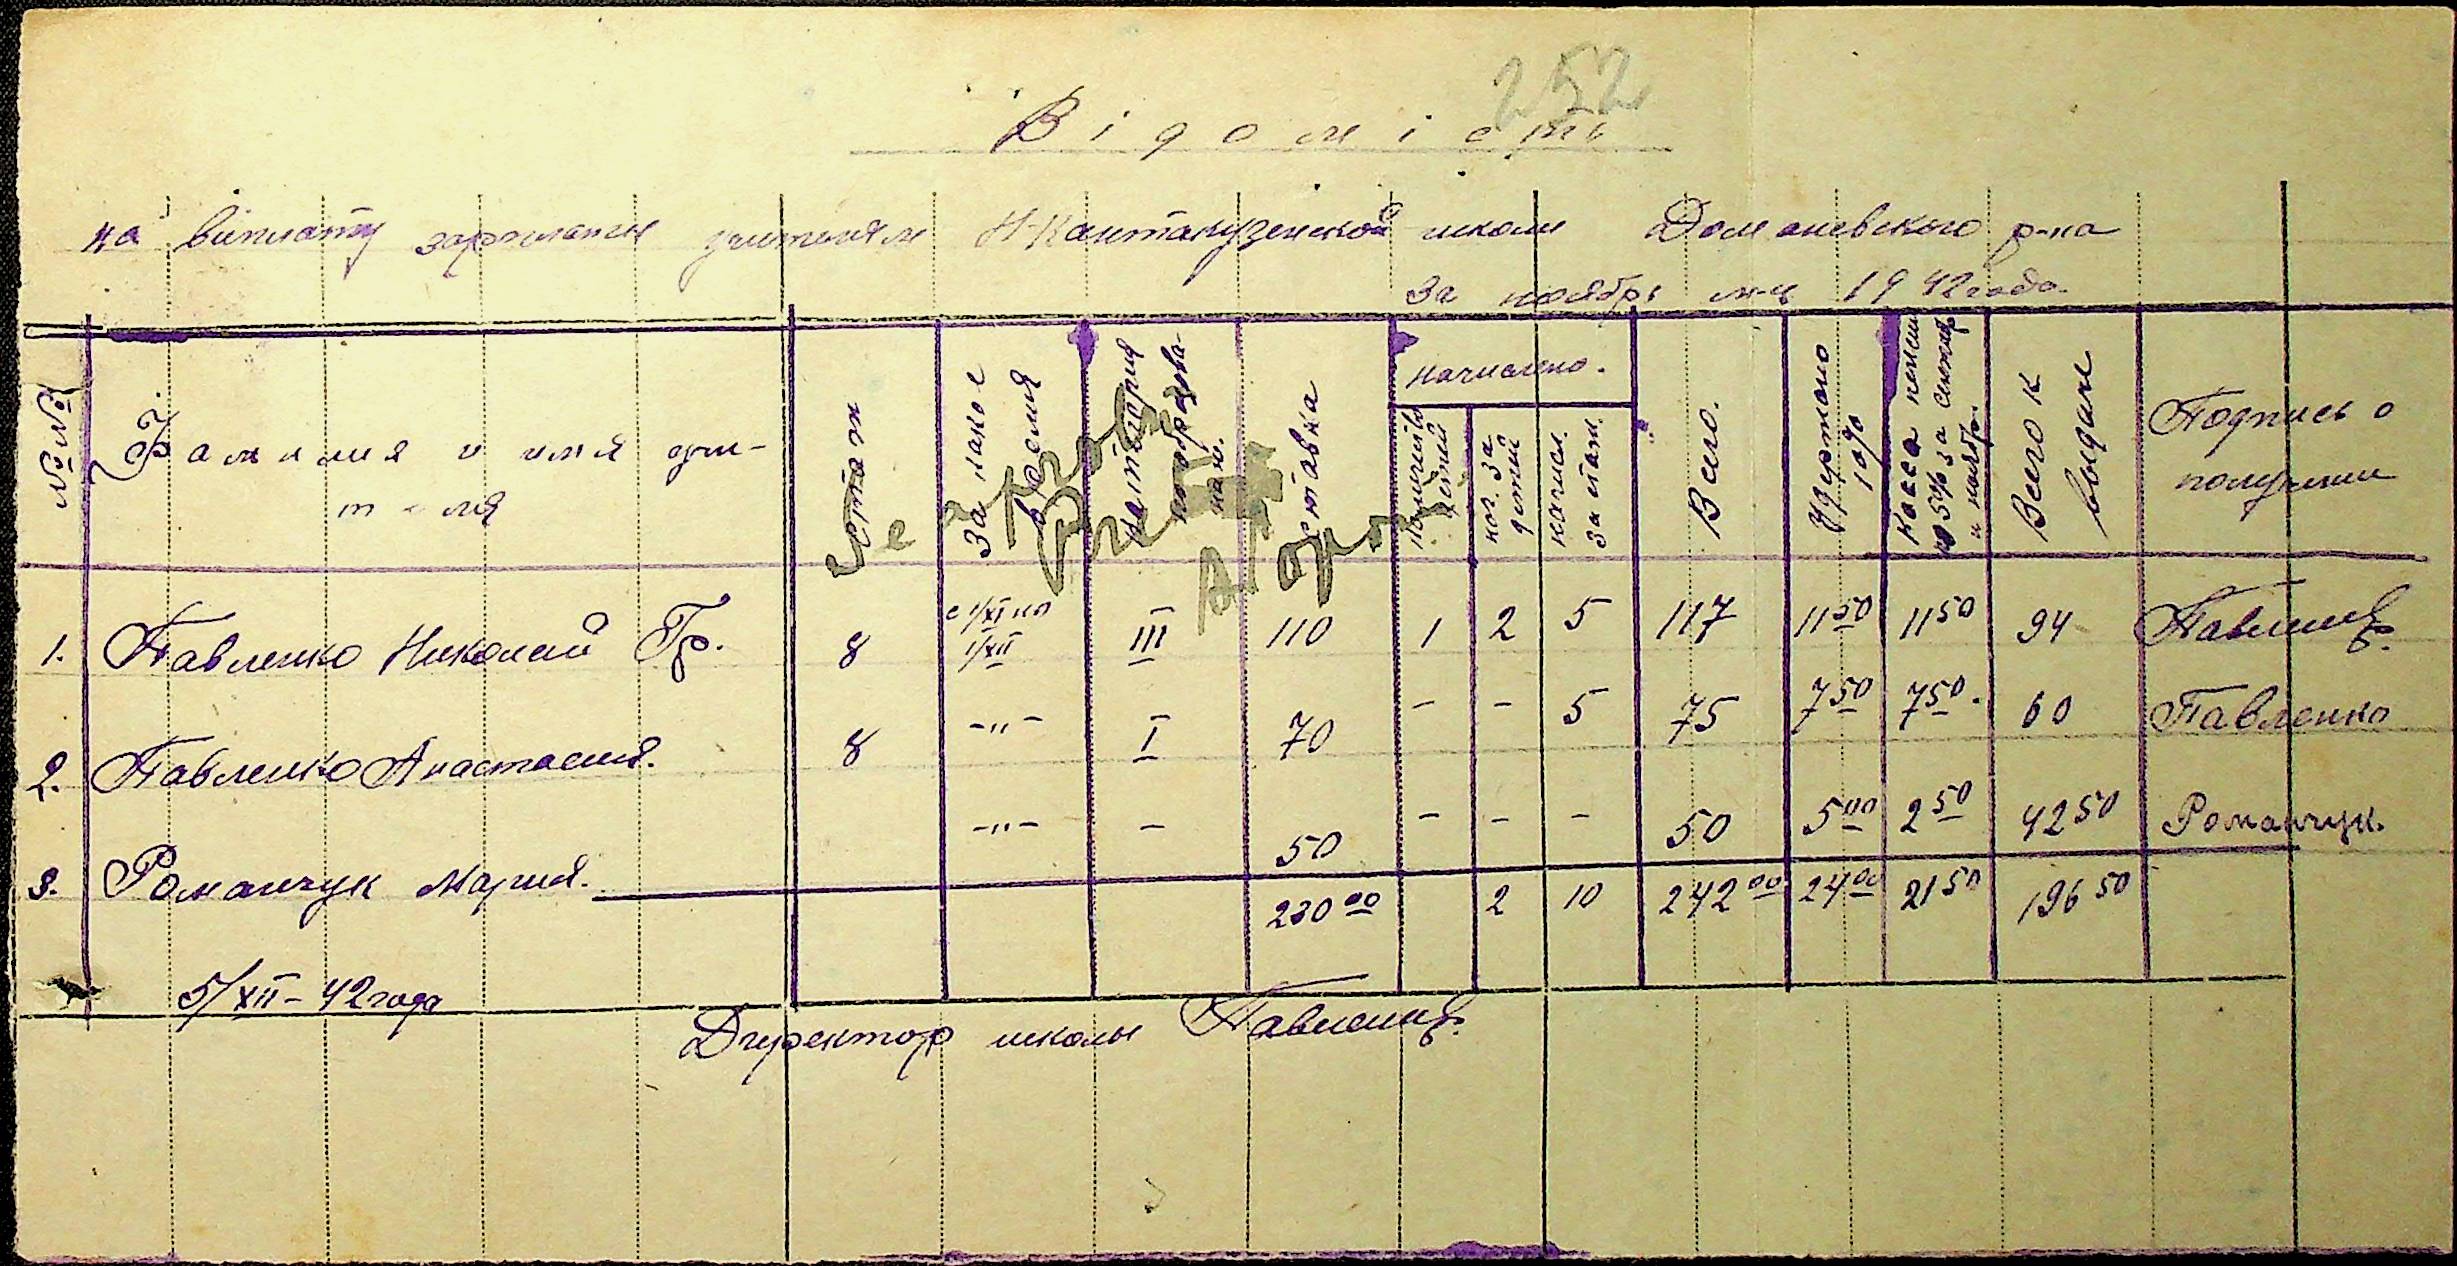 252
Відомість
на виплату зарплаты учителям Н-Кантакузенской школы Доманевского р-на
За ноябрь м-ц 1942 года.
№№ Фамилия и имя учителя стаж За какое время категория по образован. ставка начислено. количеств. детей нач. за детей начисл. за стаж. Всего. Удержано 10% касса пенсии 5% за сентябр и ноябр. Всего к выдаче Подпись о получении
1. Павленко Николай Гр. 8 с 1/XI по 1/XII III 110 1 2 5 117 11 50 11 50 94
2. Павленко Анастасия. 8 -"- I 70 - - 5 75 7 50 7 50. 60 Павленко
3. Романчук Мария. -"- - 50 - - - 50 5 00 2 50 42 50 Романчук.
230 00 2 10 242 00 24 00 21 50 196 50
5/XII-42 года
Директор школы